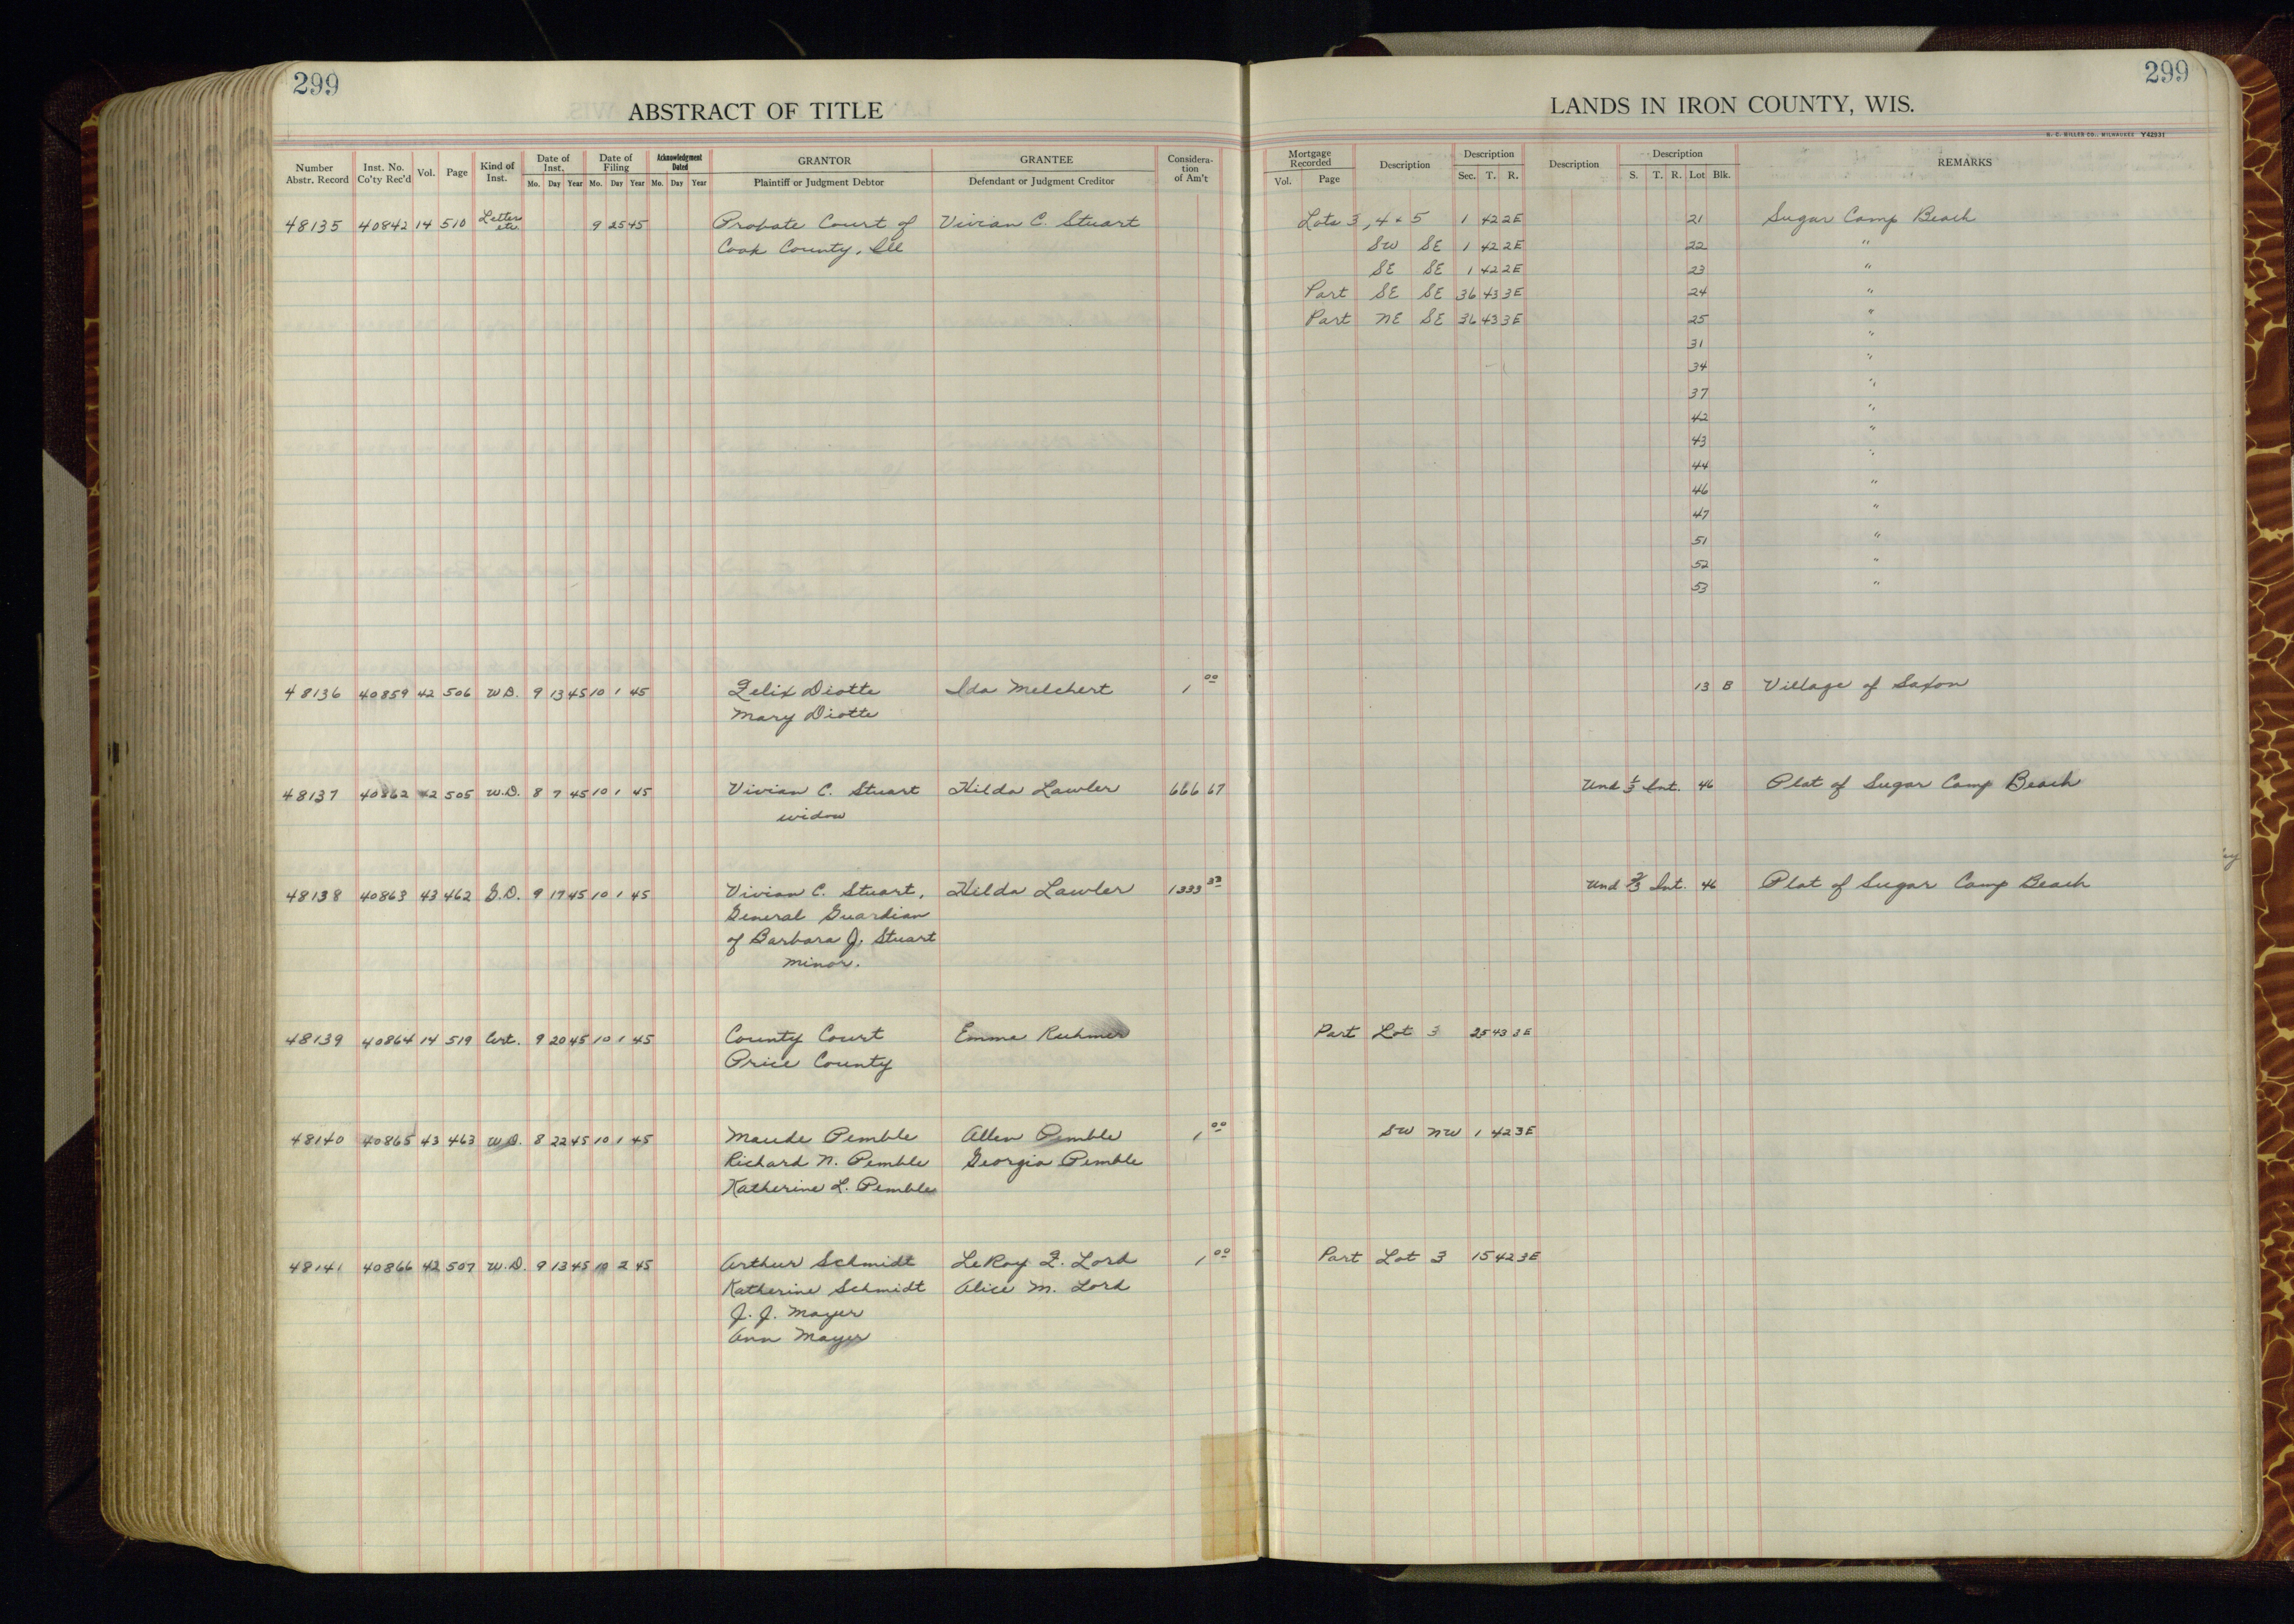 299
ABSTRACT OF TITLE
Number Abstr. Record Inst. No. Co'ty Rec'd Vol. Page Kind of Inst. Date of Inst. Mo. Day Year Date of Filing Mo. Day Year Acknowledgment Dated Mo. Day Year GRANTOR Plaintiff or Judgment Debtor GRANTEE Defendant or Judgment Creditor Considera-tion of Am't
48135 40842 14 510 Letters etc. 9 25 45 Probate Court of Vivian C. Stuart
Cook County, Ill
48136 40859 42 506 W.D. 9 13 45 10 1 45 Felix Diotte Ida Melchert 1 00
Mary Diotte
48137 40862 42 505 W.D. 8 7 45 10 1 45 Vivian C. Stuart Hilda Lawler 666 67
widow
48138 40863 43 462 G.D. 9 17 45 10 1 45 Vivian C. Stuart, Hilda Lawler 1333 33
General Guardian
of Barbara J. Stuart
minor.
48139 40864 14 519 Cert. 9 20 45 10 1 45 County Court Emma Ruhmer
Price County
48140 40865 43 463 W.D. 8 22 45 10 1 45 Maude Pemble Allen Pemble 1 00
Richard N. Pemble Georgia Pemble
Katherine L. Pemble
48141 40866 42 507 W.D. 9 13 45 10 2 45 Arthur Schmidt LeRoy F. Lord 1 00
Katherine Schmidt Alice M. Lord
J. J. Mayer
Ann Mayer
299
LANDS IN IRON COUNTY, WIS.
H. C. MILLER CO., MILWAUKEE Y42931
Mortgage Recorded Vol. Page Description Description Sec. T. R. Description Description S. T. R. Lot Blk. REMARKS
Lots 3, 4 & 5 1 42 2E 21 Sugar Camp Beach
SW SE 1 42 2E 22 "
SE SE 1 42 2E 23 "
Part SE SE 36 43 3E 24 "
Part NE SE 36 43 3E 25 "
31 "
34 "
37 "
42 "
43 "
44 "
46 "
47 "
51 "
52 "
53 "
13 B Village of Saxon
Und 1/3 Int. 46 Plat of Sugar Camp Beach
Und 2/3 Int. 46 Plat of Sugar Camp Beach
Part Lot 3 25 43 3E
SW NW 1 42 3E
Part Lot 3 15 42 3E